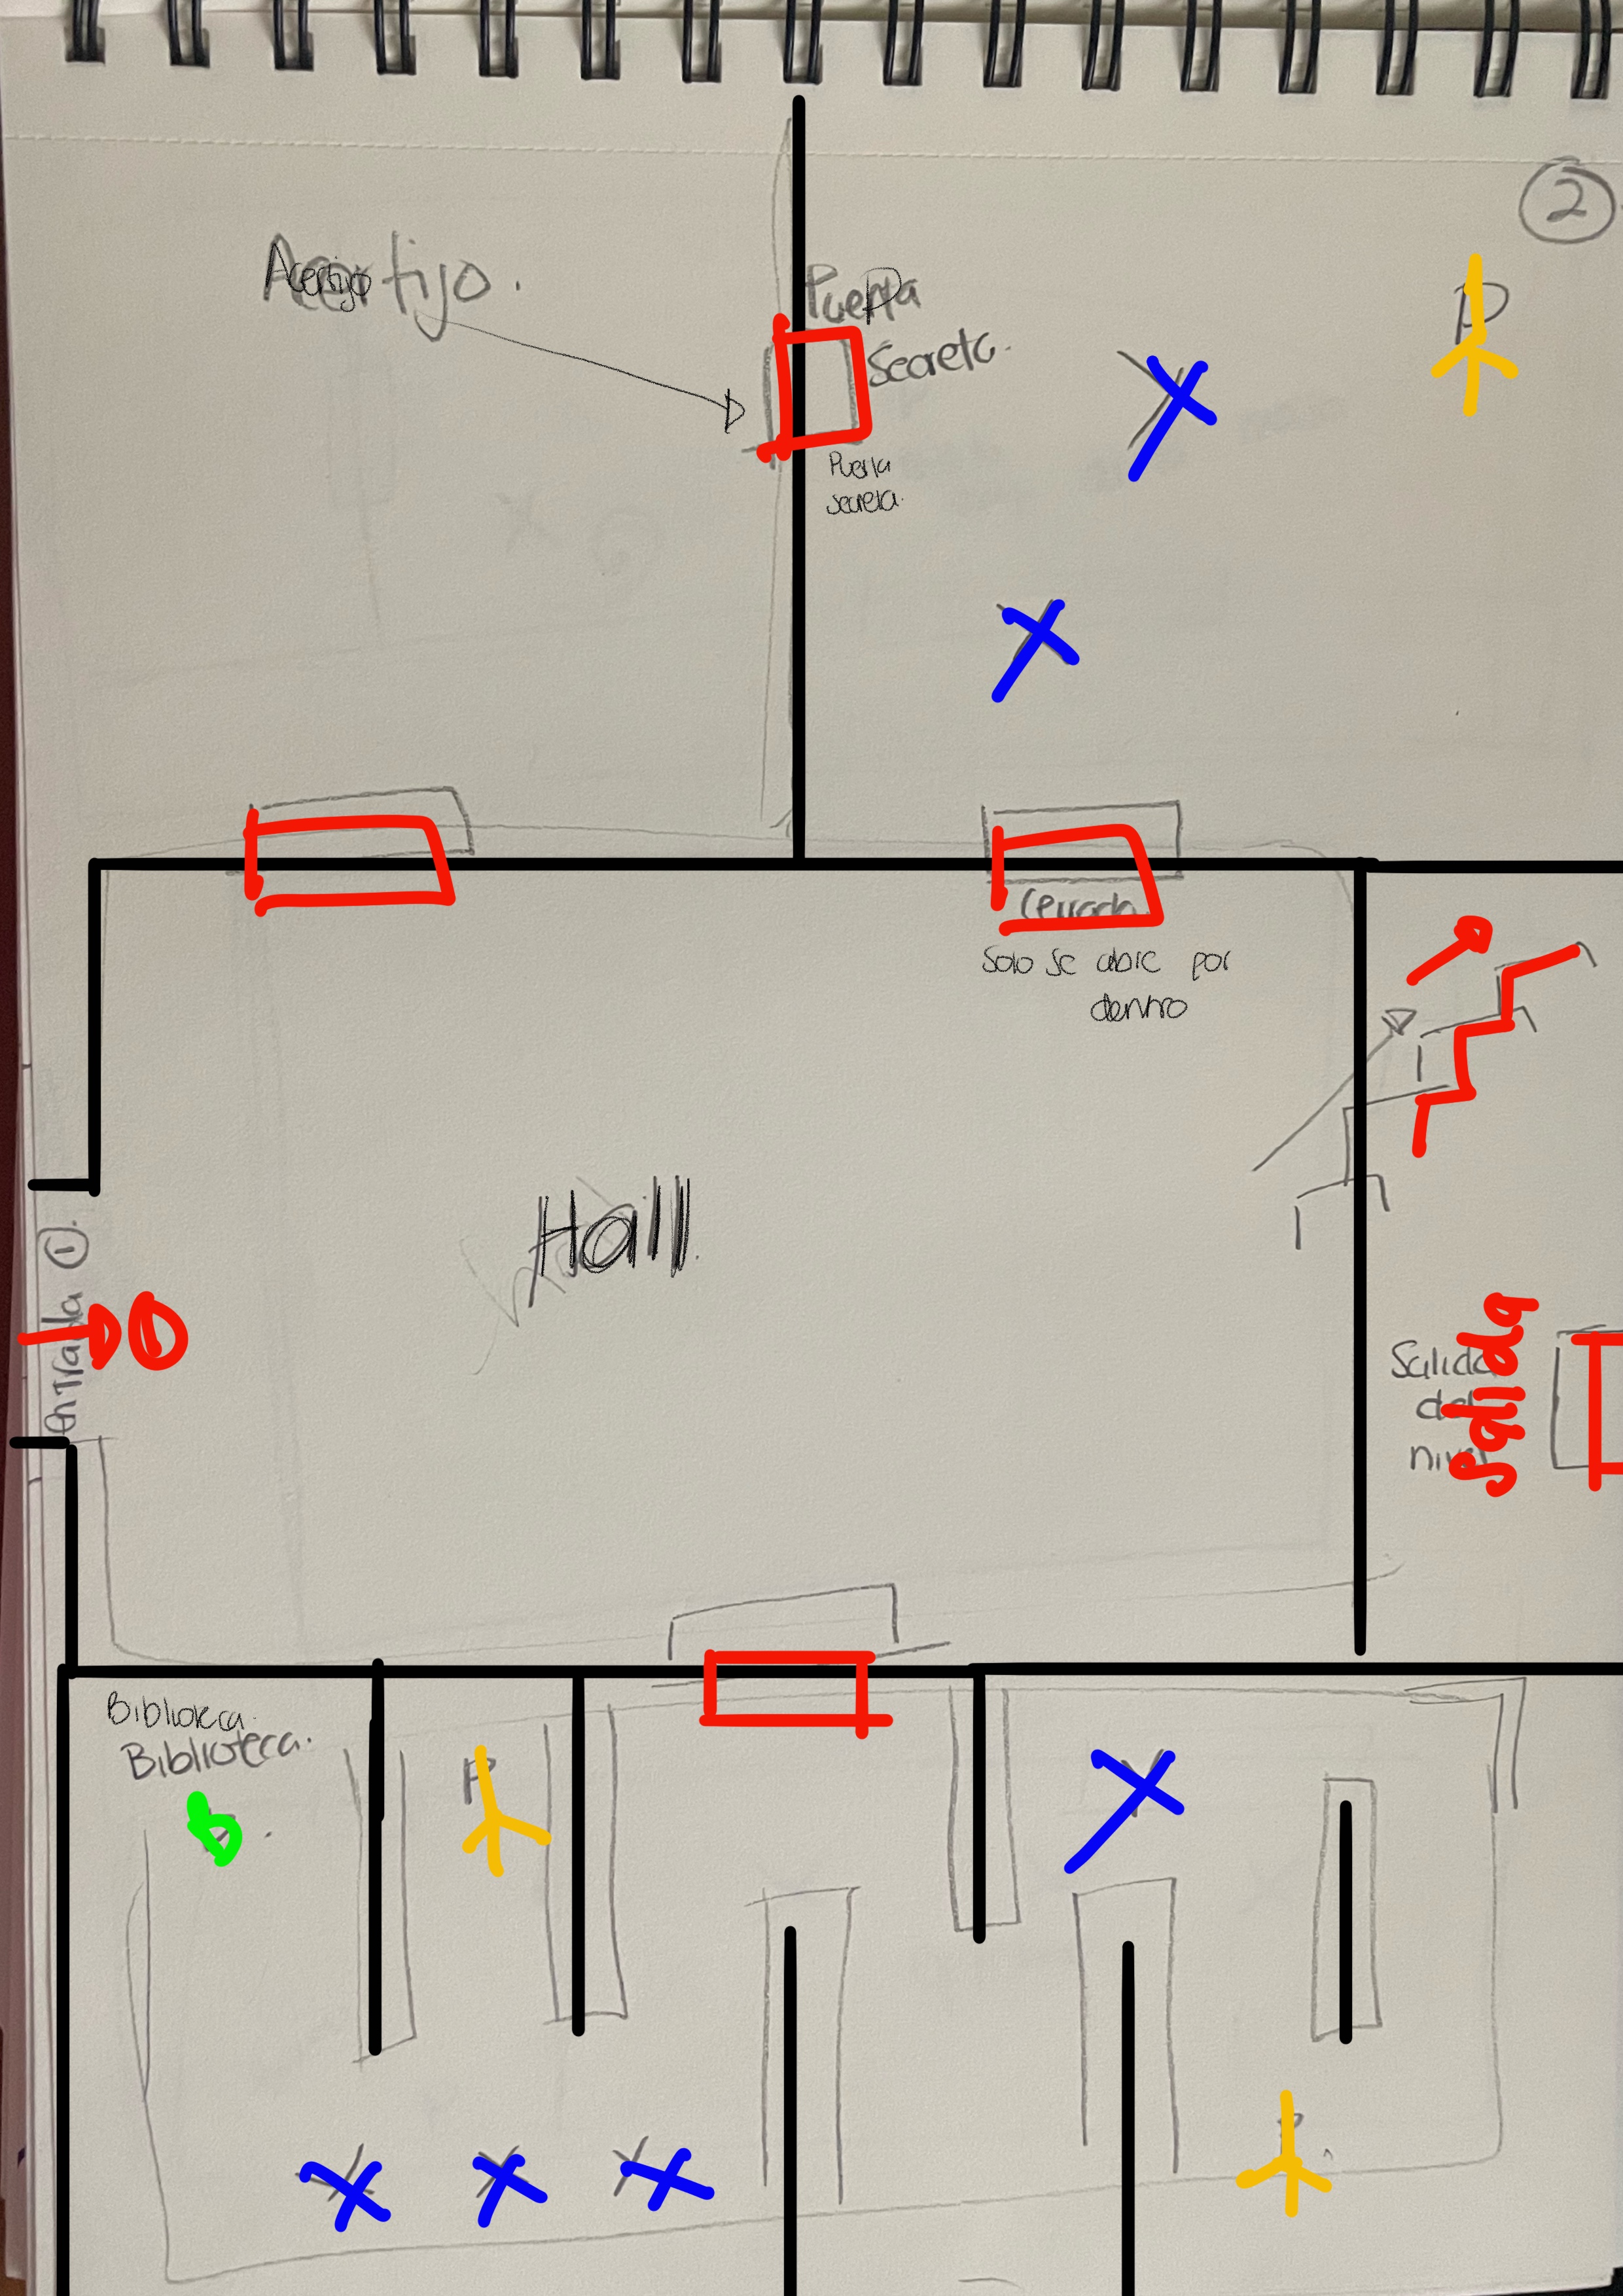 2
Acertijo.
Acertijo
Puerta
Secreta.
P
Puerta
secreta.
Cerrada
Solo se abre por
dentro
Hall
Entrada 1.
1
Salida
del
nivel
Salida
Biblioteca.
Biblioteca.
P